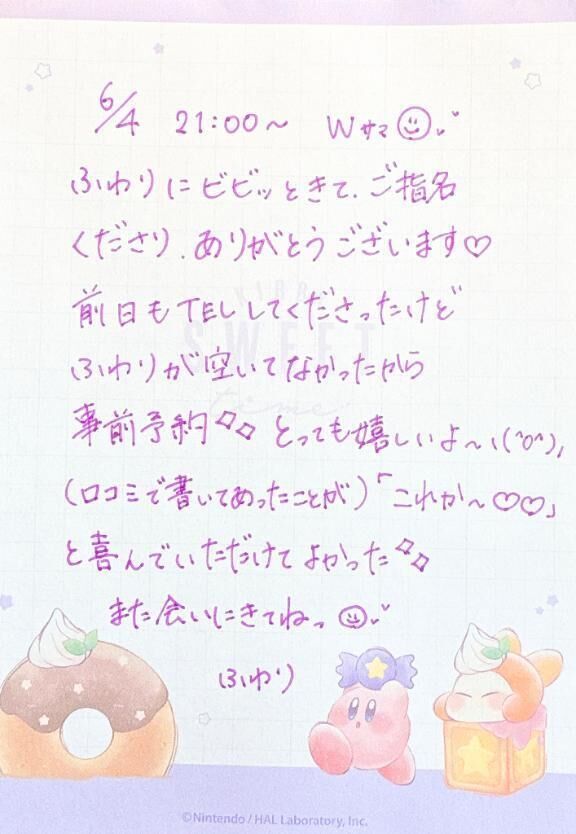 6/4 21:00〜 Wサマ
ふわりにビビッときて、ご指名
くださり、ありがとうございます♡
前日もTELしてくださったけど
ふわりが空いてなかったから
事前予約 とっても嬉しいよ〜ヽ(^o^)ノ
(口コミで書いてあったことが)「これか〜♡♡」
と喜んでいただけてよかった
また会いにきてねっ
ふわり
KIRBY
SWEET
time
©Nintendo / HAL Laboratory, Inc.